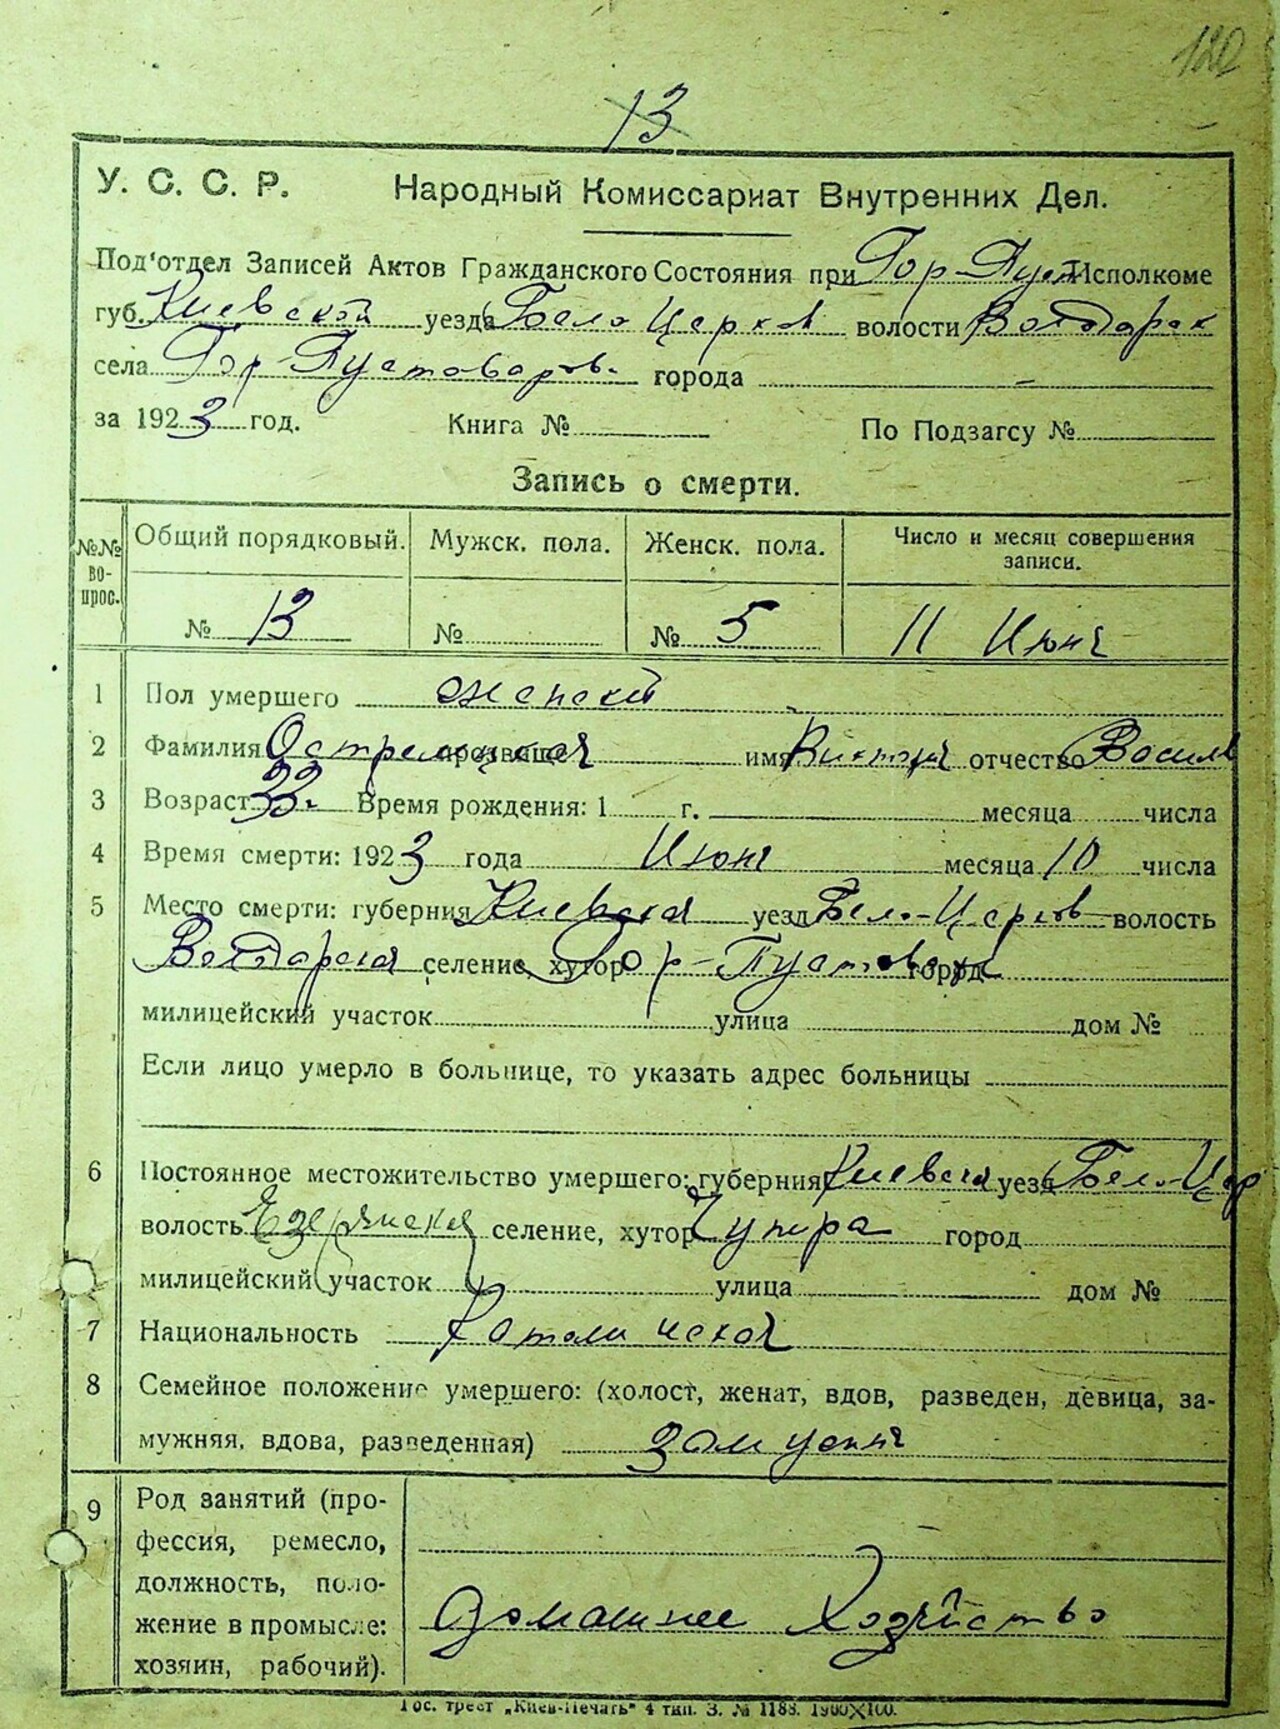 120
13
У. С. С. Р. Народный Комиссариат Внутренних Дел.
Под'отдел Записей Актов Гражданского Состояния при Гор-Пуст Исполкоме
губ. Киевской уезда Бело Церков волости Володарск
села Гор-Пустоваров. города –
за 1923 год. Книга № По Подзагсу №
Запись о смерти.
№№ во- прос. Общий порядковый. Мужск. пола. Женск. пола. Число и месяц совершения записи.
№ 13 № № 5 11 Июня
1 Пол умершего женский
2 Фамилия прозвище имя отчество Василь
3 Возраст 33. Время рождения: 1 г. месяца числа
4 Время смерти: 1923 года Июня месяца 10 числа
5 Место смерти: губерния Киевская уезд Бело-Церков волость
Володарская селение, хутор Гор-Пустовар город
милицейский участок улица дом №
Если лицо умерло в больнице, то указать адрес больницы
6 Постоянное местожительство умершего: губерния Киевская уезд Бело-Цер
волость Езерянская селение, хутор Чупира город
милицейский участок улица дом №
7 Национальность Католическая
8 Семейное положение умершего: (холост, женат, вдов, разведен, девица, за-
мужняя, вдова, разведенная)
9 Род занятий (про-
фессия, ремесло,
должность, поло-
жение в промысле:
хозяин, рабочий).
Домашнее Хозяйство
Гос. трест „Киев-Печать" 4 тип. З. № 1188. 1900X100.